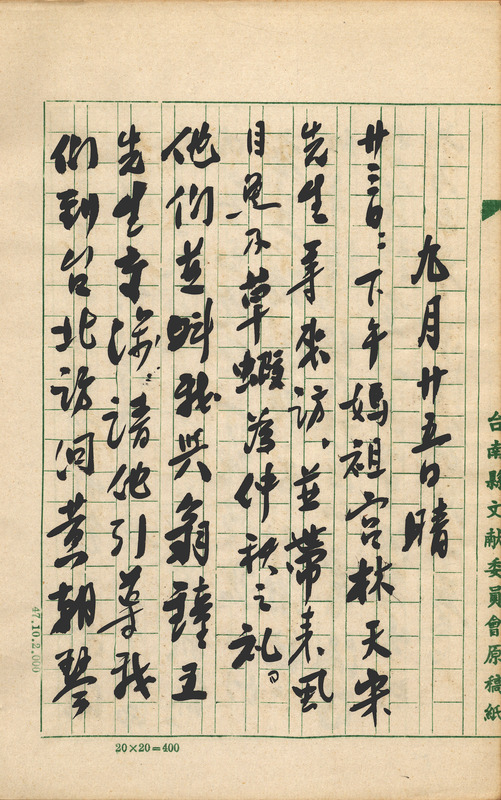 台南縣文獻委員會原稿紙
九月廿五日 晴
廿三日:下午媽祖宮林天來
先生等來訪、並帶來虱
目魚及草蝦為仲秋之礼。
他们並叫我與翁鐘五
先生請他引導我
们到台北訪问黃朝琴
20×20=400
47.10.2,000